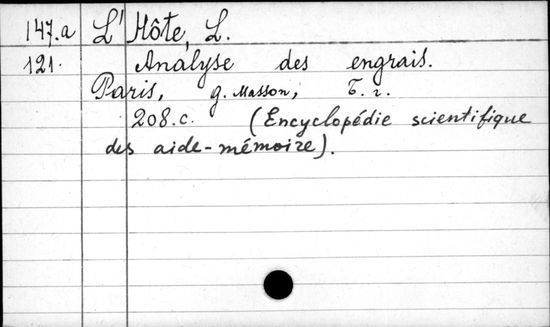 147.a L'Hôte, L.
121. Analyse des engrais.
Paris, G. Masson, s. d.
208.c. (Encyclopédie scientifique
des aide-mémoire).